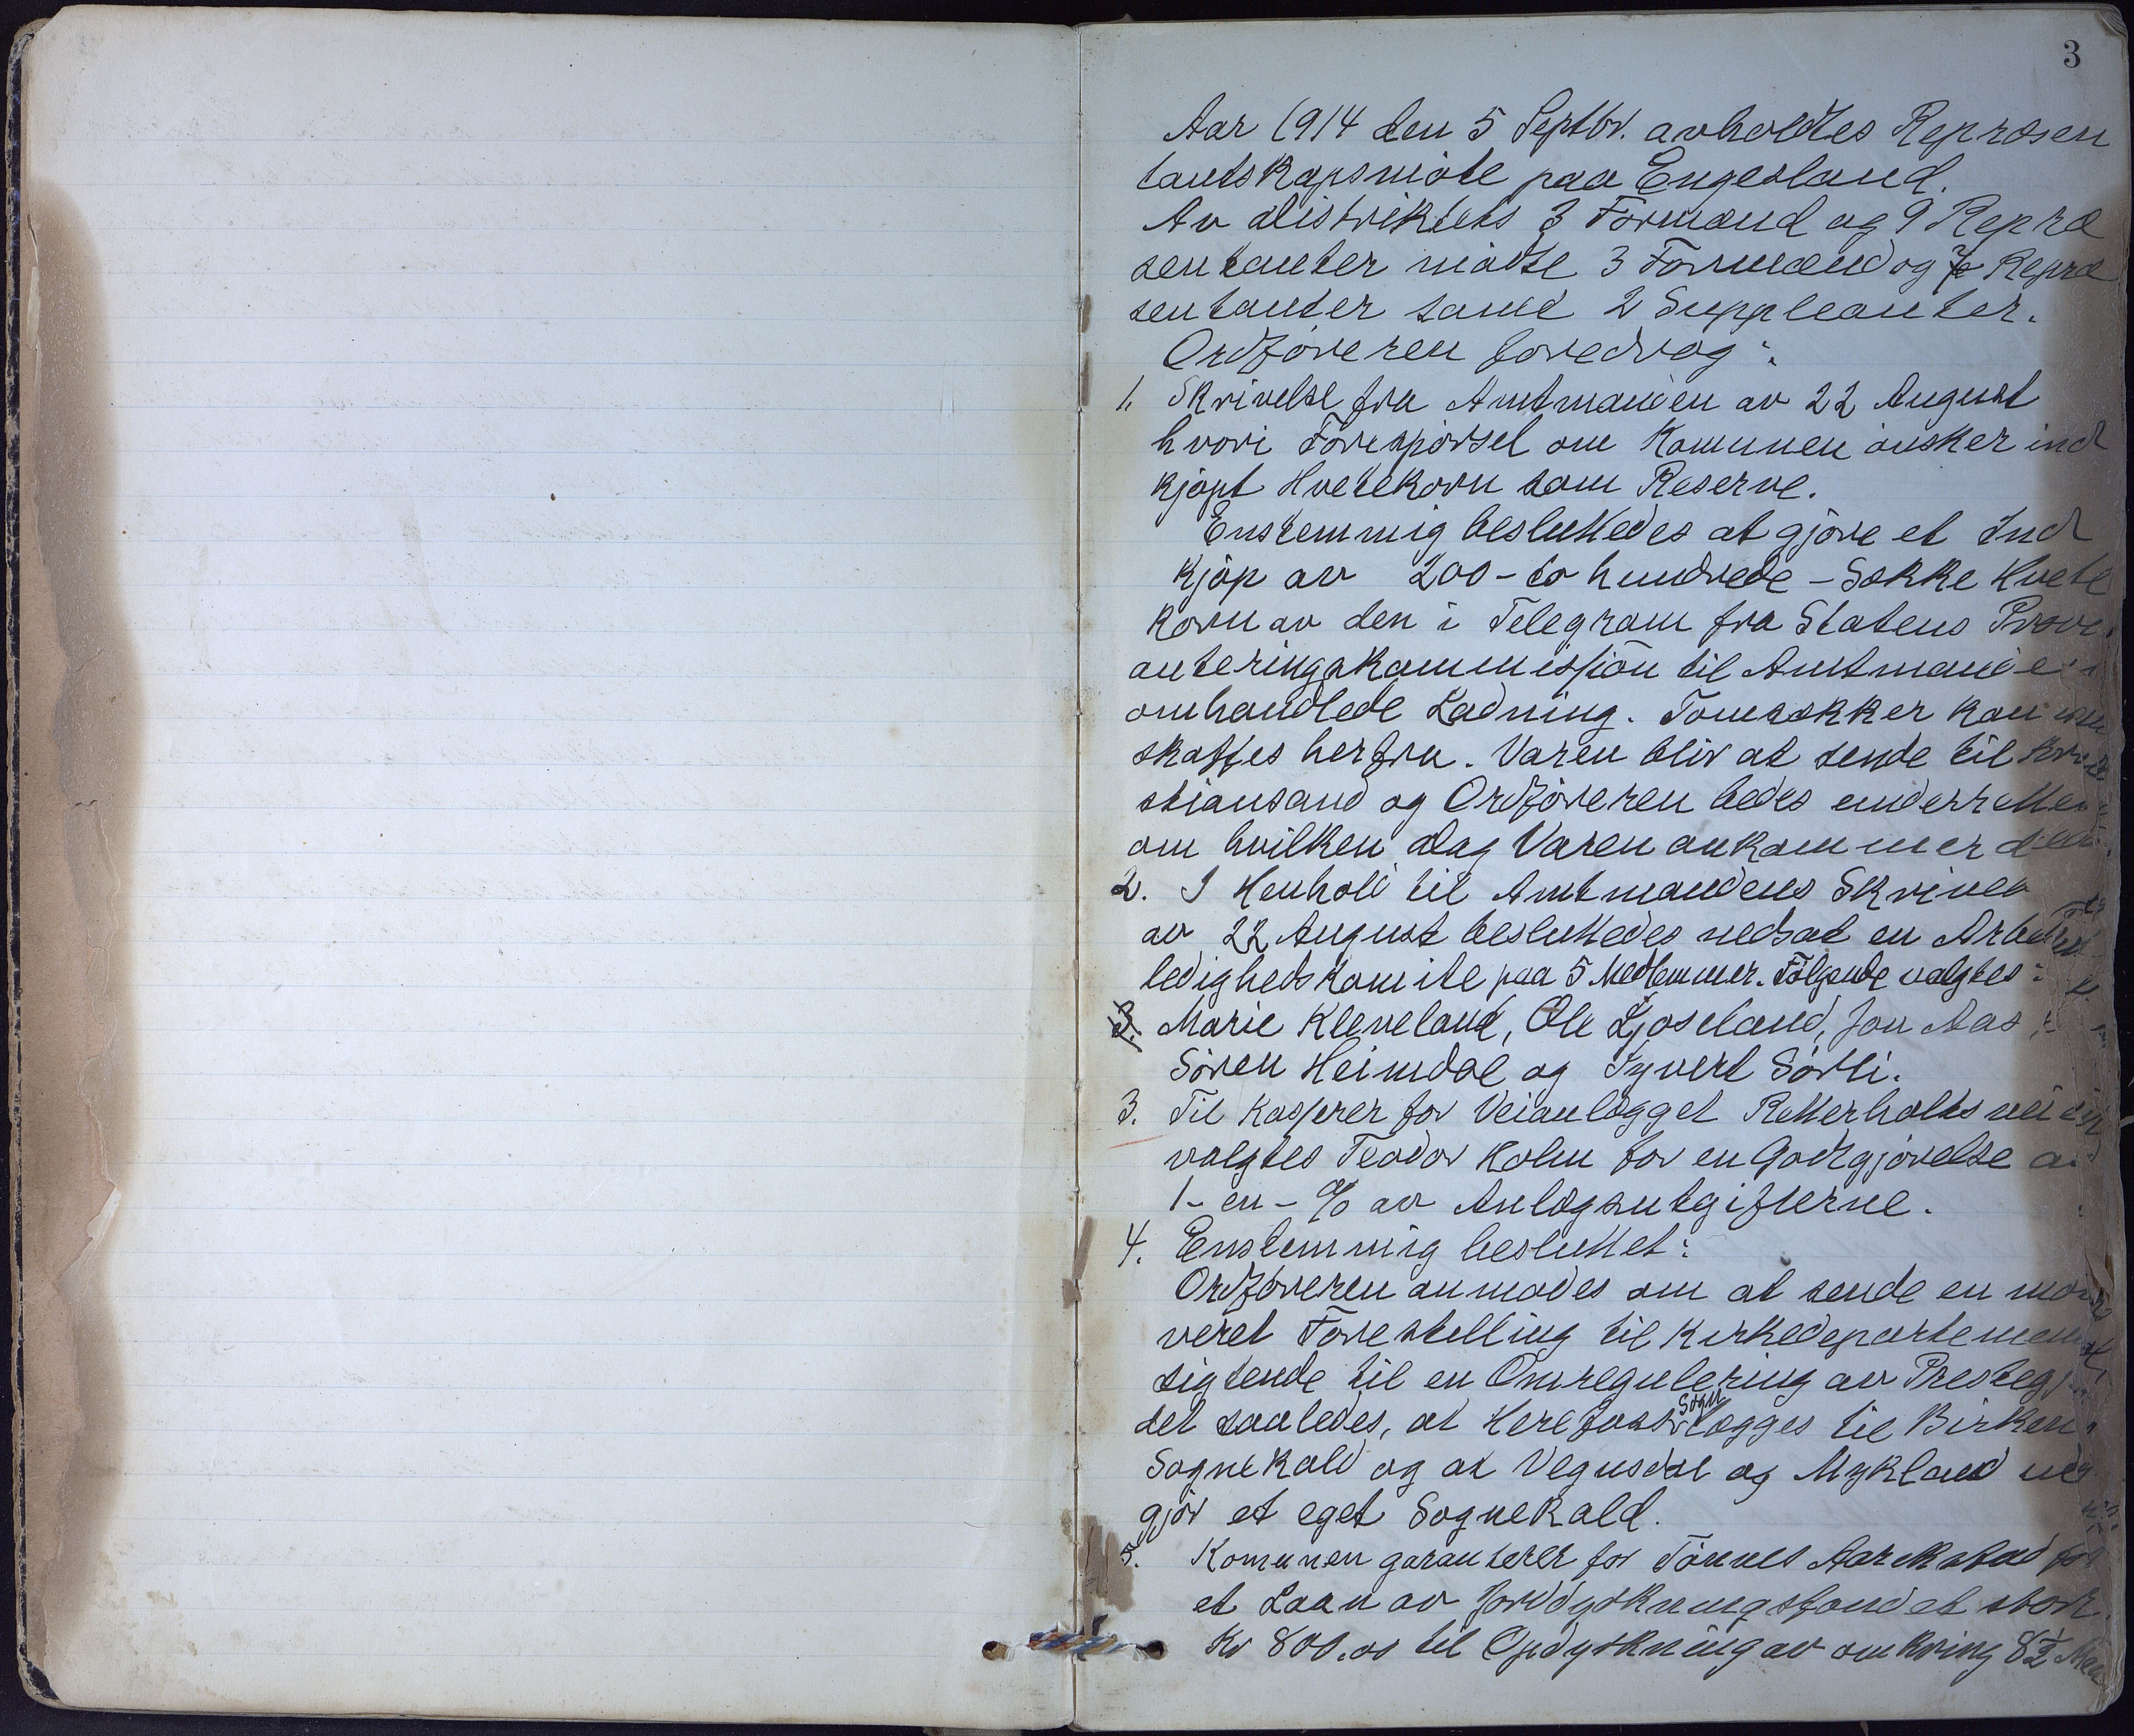 3
Aar 1914 den 5 Septbr. avholdtes Repræsen
tantskapsmöte paa Engesland.
Av distriktets 3 Formænd og 9 Repræ
sentanter mötte 3 Formænd og 7 Repræ
sentanter samt 2 Suppleanter.
Ordföreren foredrog:
1. Skrivelse fra Amtmanden av 22 August
hvori Forespörsel om Komunen önsker ind
kjöpt Hvetekorn som Reserve.
Enstemmig besluttedes at gjöre et Ind
kjöp av 200 - to hundrede - Sække Hvete
korn av den i Telegram fra Statens Provi
anteringskommission til Amtmanden
omhandlede Ladning. Tomsækker kan
skaffes herfra. Varen blir at sende til Kri
stiansand og Ordföreren bedes underrettet
om hvilken dag Varen ankommer der.
2. I Henhold til Amtmandens Skrivel
av 22 August besluttedes nedsat en Arbeids
ledighedskomite paa 5 Medlemmer. Fölgende valgtes:
Marie Kleveland, Ole Ljosland, Jon Aas
Sören Heimdal og Syvert Sörli.
3. Til Kasserer for Veianlægget Retterholtsveien
valgtes Teodor Holm for en Godtgjörelse av
1 - en - % av Anlægsutgifterne.
4. Enstemmig besluttet:
Ordföreren anmodes om at sende en moti
veret Forestilling til Kirkedepartement
sigtende til en Omregulering av Prestegj
det saaledes, at Herefoss Sogn lægges til Birkenes
Sognekald og at Vegusdal og Mykland ud
gjör et eget Sognekald.
5. Komunen garanterer for Tönnes Aarikstad for
et Laan av Jorddyrkningsfondet stort
Kr 800.00 til Opdyrkning av omkring 8½ Maal